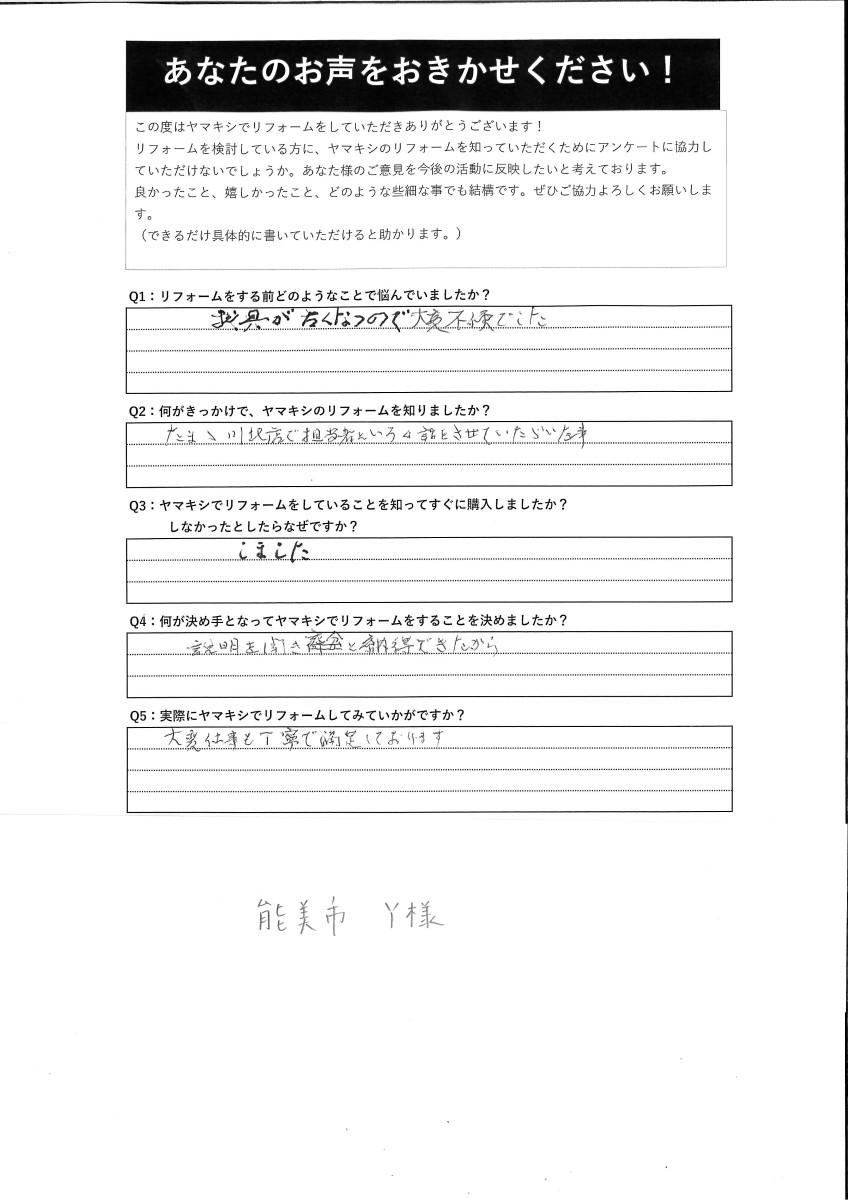 あなたのお声をおきかせください！
この度はヤマキシでリフォームをしていただきありがとうございます！
リフォームを検討している方に、ヤマキシのリフォームを知っていただくためにアンケートに協力し
ていただけないでしょうか。あなた様のご意見を今後の活動に反映したいと考えております。
良かったこと、嬉しかったこと、どのような些細な事でも結構です。ぜひご協力よろしくお願いしま
す。
（できるだけ具体的に書いていただけると助かります。）
Q1：リフォームをする前どのようなことで悩んでいましたか？
具が古くなつので大変不便でした
Q2：何がきっかけで、ヤマキシのリフォームを知りましたか？
たまゝ川北店で担当者といろ々話をさせていただいた事
Q3：ヤマキシでリフォームをしていることを知ってすぐに購入しましたか？
しなかったとしたらなぜですか？
しました
Q4：何が決め手となってヤマキシでリフォームをすることを決めましたか？
説明を聞き料金と納得できたから
Q5：実際にヤマキシでリフォームしてみていかがですか？
大変仕事も丁寧で満足しております
能美市 Y様